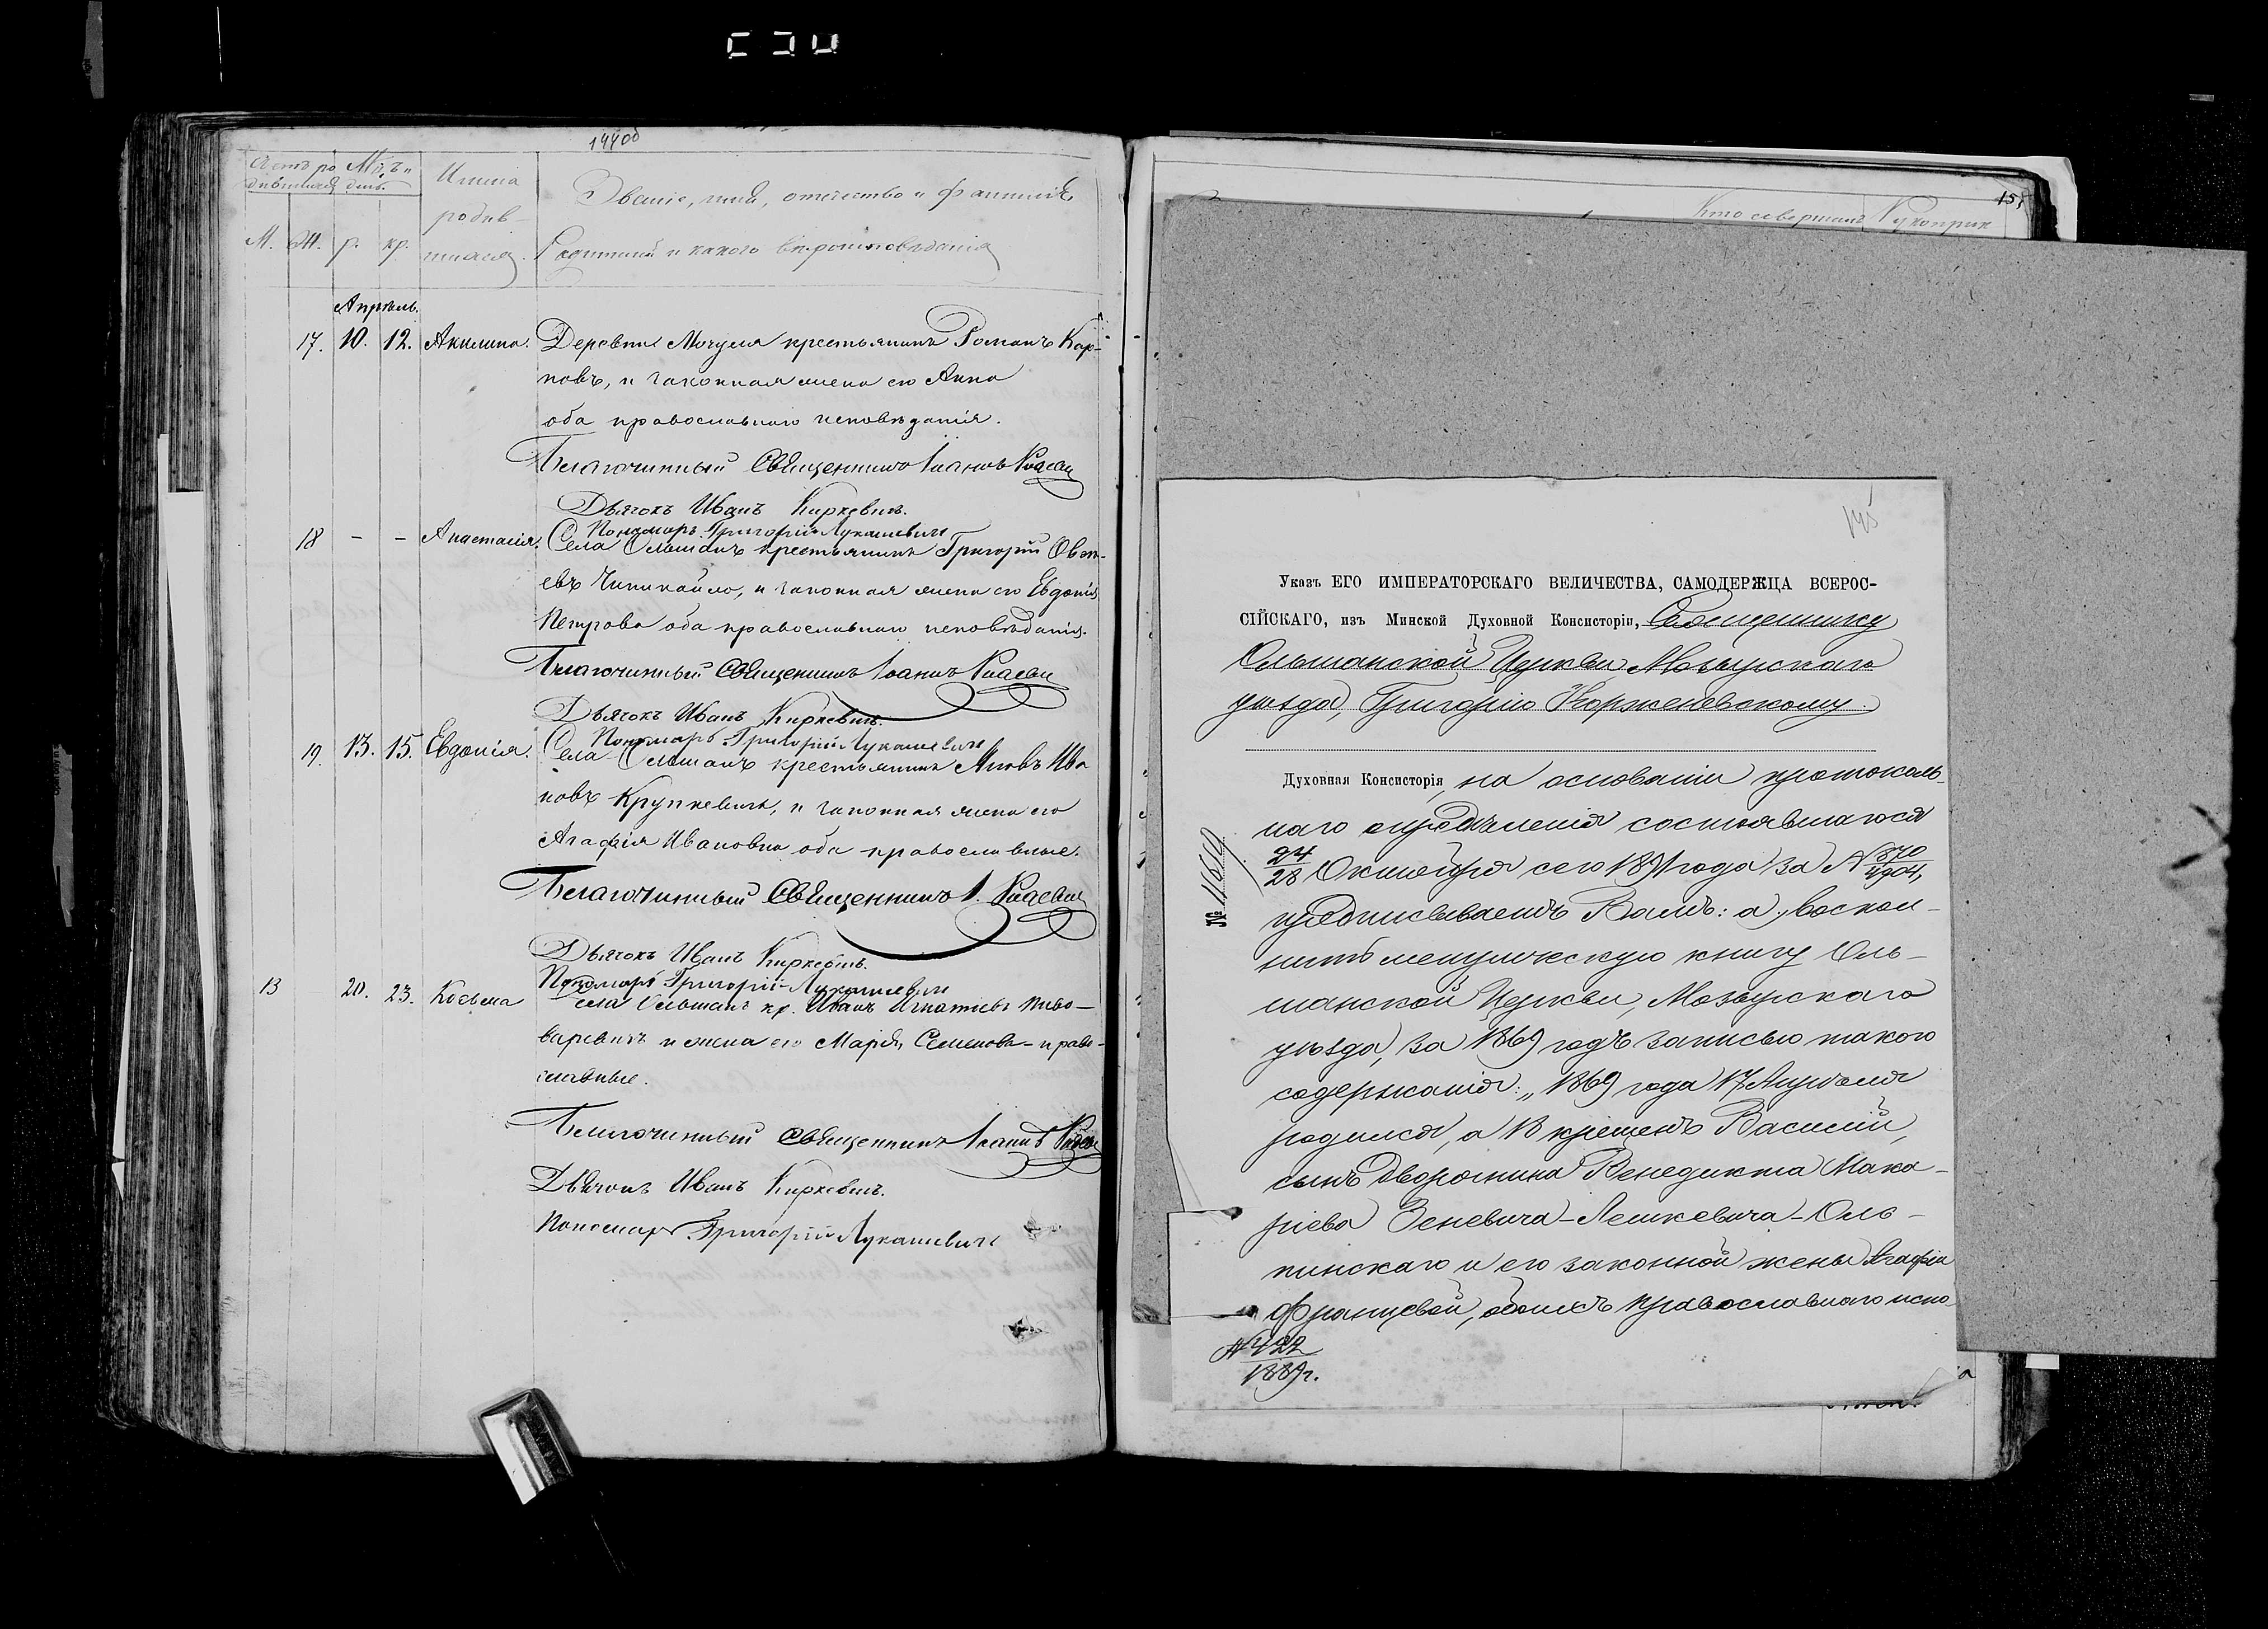 144об
Счетъ ро Мѣ. и
дившихся день.
М. Ж. р. кр.
Имена
родив-
шихся.
Званіе, имя, отчество и фамилія
Родителей и какого вѣроисповѣданія
Апрѣль.
17. 10. 12. Акилина. Деревни Мочуля крестьянинъ Романъ Кар-
повъ, и законная жена его Анна
оба православнаго исповѣданія.
Благочинный Священникъ Іоаннъ
Дьячокъ Иванъ Киркевичъ.
Пономарь Григорій Лукашевичъ
18 - - Анастасія. Села Ольшанъ крестьянинъ Григорій
евъ и законная жена его Евдокія
Петрова оба православнаго исповѣданія.
Благочинный Священникъ Іоаннъ
Дьячокъ Иванъ Киркевичъ.
Пономарь Григорій Лукашевичъ
19. 13. 15. Евдокія. Села Ольшанъ крестьянинъ Яковъ Ива
новъ Крупкевичъ, и законная жена его
Агафія Ивановна оба православные.
Благочинный Священникъ І.
Дьячокъ Иванъ Киркевичъ.
Пономарь Григорій Лукашевичъ
13 20. 23. Косьма Села Ольшанъ кр. Иванъ Игнатіевъ Пиво-
варевичъ и жена его Марія Семенова - право-
славные.
Благочинный Священникъ Іоаннъ
Дьячокъ Иванъ Киркевичъ.
Пономарь Григорій Лукашевичъ
Кто совершалъ Рукоприк
145
Указъ ЕГО ИМПЕРАТОРСКАГО ВЕЛИЧЕСТВА, САМОДЕРЖЦА ВСЕРОС-
СІЙСКАГО, изъ Минской Духовной Консисторіи, Священнику
Ольшанской Церкви Мозырскаго
уѣзда, Григорію Корженевскому.
Духовная Консисторія, на основаніи протоколь-
наго опредѣленія состоявшагося
24/28 Октября сего 1891 года за №
предписываетъ Вамъ: а, воспол-
нить метрическую книгу Оль-
шанской Церкви, Мозырскаго
уѣзда, за 1869 годъ записью такого
содержанія: „1869 года 17 Апрѣля
родился, а 18 крещенъ Василій,
сынъ дворянина Венедикта Мака-
ріева Зеневича-Лешкевича-Оль-
пинскаго и его законной жены Агафіи
Францевой, обоихъ православнаго испо-
№
1889 г.